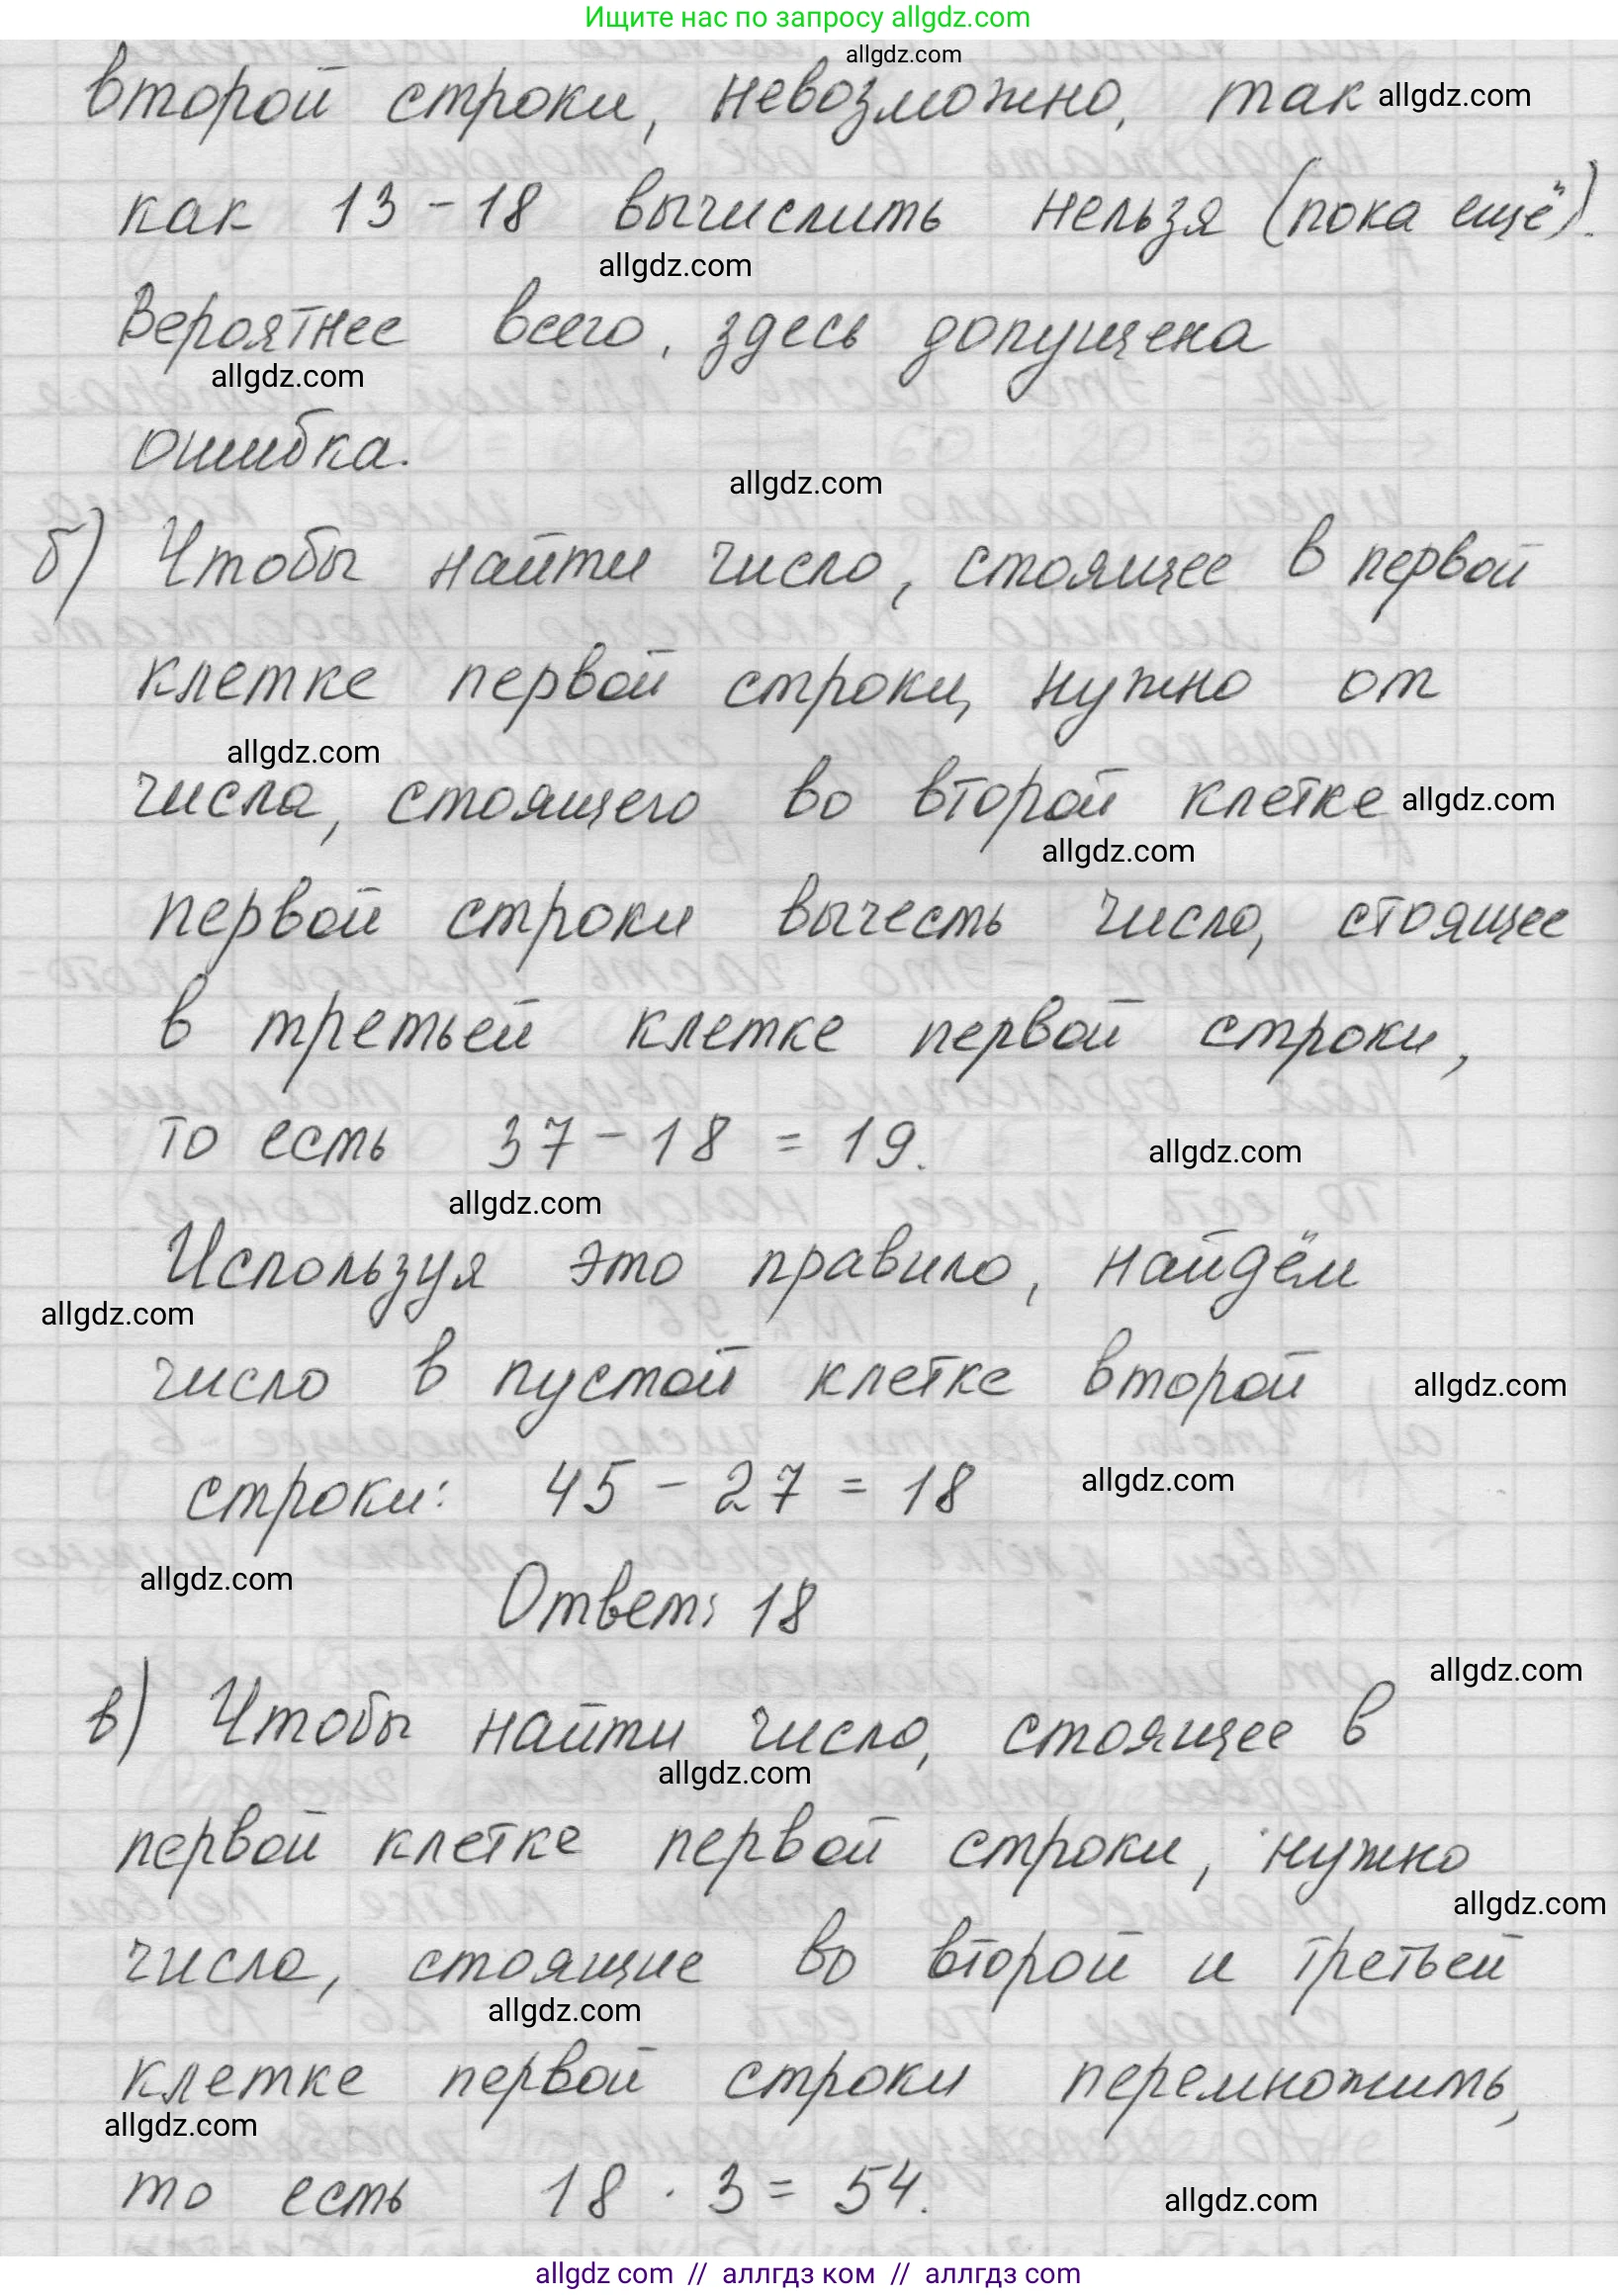 Ищите нас по запросу allgdz.com
allgdz.com
второй строки, невозможно, так allgdz.com
как 13 - 18 вычислить нельзя (пока ещё).
allgdz.com
Вероятнее всего, здесь допущена
allgdz.com
ошибка.
allgdz.com
б) Чтобы найти число, стоящее в первой
клетке первой строки, нужно от
allgdz.com
числа, стоящего во второй клетке allgdz.com
allgdz.com
первой строки вычесть число, стоящее
в третьей клетке первой строки,
то есть 37 - 18 = 19.
allgdz.com
allgdz.com
Используя это правило, найдём
allgdz.com
число в пустой клетке второй allgdz.com
строки: 45 - 27 = 18 allgdz.com
allgdz.com
Ответ: 18
allgdz.com
в) Чтобы найти число, стоящее в
allgdz.com
первой клетке первой строки, нужно
allgdz.com
числа, стоящие во второй и третьей
allgdz.com
клетке первой строки перемножить,
allgdz.com
то есть 18 · 3 = 54. allgdz.com
allgdz com // аллгдз ком // аллгдз com